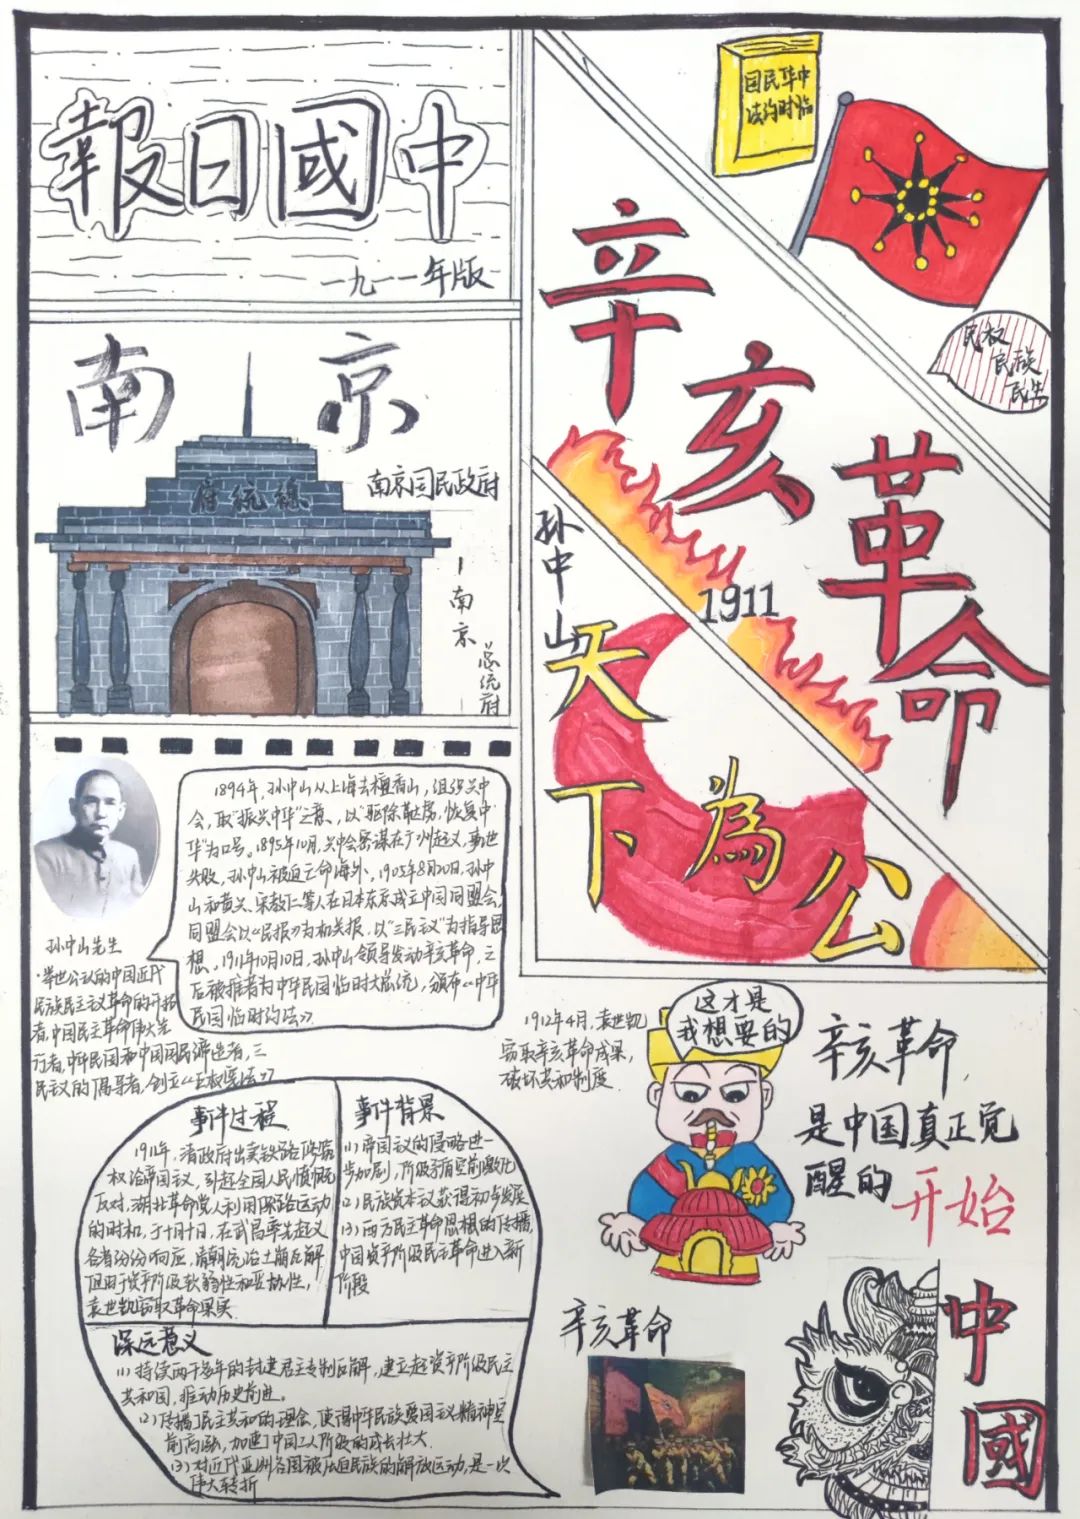 中國日報
一九一一年版
中华民国
临时约法
民权
民族
民生
辛亥革命
1911
孙中山
天下為公
南京
南京国民政府
總統府
南京
总统府
孙中山先生
·举世公认的中国近代
民族民主主义革命的开拓
者,中国民主革命伟大先
行者,中华民国和中国国民党缔造者,三
民主义的倡导者,创立《五权宪法》
1894年,孙中山从上海去檀香山,组织兴中
会,取"振兴中华"之意,以"驱除鞑虏,恢复中
华"为口号。1895年10月,兴中会密谋在广州起义,事泄
失败,孙中山被迫亡命海外,1905年8月20日,孙中
山和黄兴、宋教仁等人在日本东京成立中国同盟会,
同盟会以《民报》为机关报,以"三民主义"为指导思
想,1911年10月10日,孙中山领导发动辛亥革命,之
后被推者为中华民国临时大总统,颁布《中华
民国临时约法》
事件过程
1911年,清政府出卖铁路修筑
权给帝国主义,引起全国人民愤慨
反对,湖北革命党人利用保路运动
的时机,于十月十日,在武昌率先起义
各省纷纷响应,清朝统治土崩瓦解
但由于资产阶级软弱性和妥协性,
袁世凯窃取革命果实
事件背景
(1)帝国主义的侵略进一
步加剧,阶级矛盾空前激化
(2)民族资本主义获得初步发展
(3)西方民主革命思想的传播,
中国资产阶级民主革命进入新
阶段
深远意义
(1)持续两千多年的封建君主专制瓦解,建立起资产阶级民主
共和国,推动历史前进。
(2)传播了民主共和的理念,使得中华民族爱国主义精神空
前高涨,加速了中国工人阶级的成长壮大
(3)对近代亚洲各国被压迫民族的解放运动,是一次
伟大转折
1912年4月,袁世凯
窃取辛亥革命成果,
破坏共和制度
这才是
我想要的
辛亥革命,
是中国真正觉
醒的开始
辛亥革命
中國